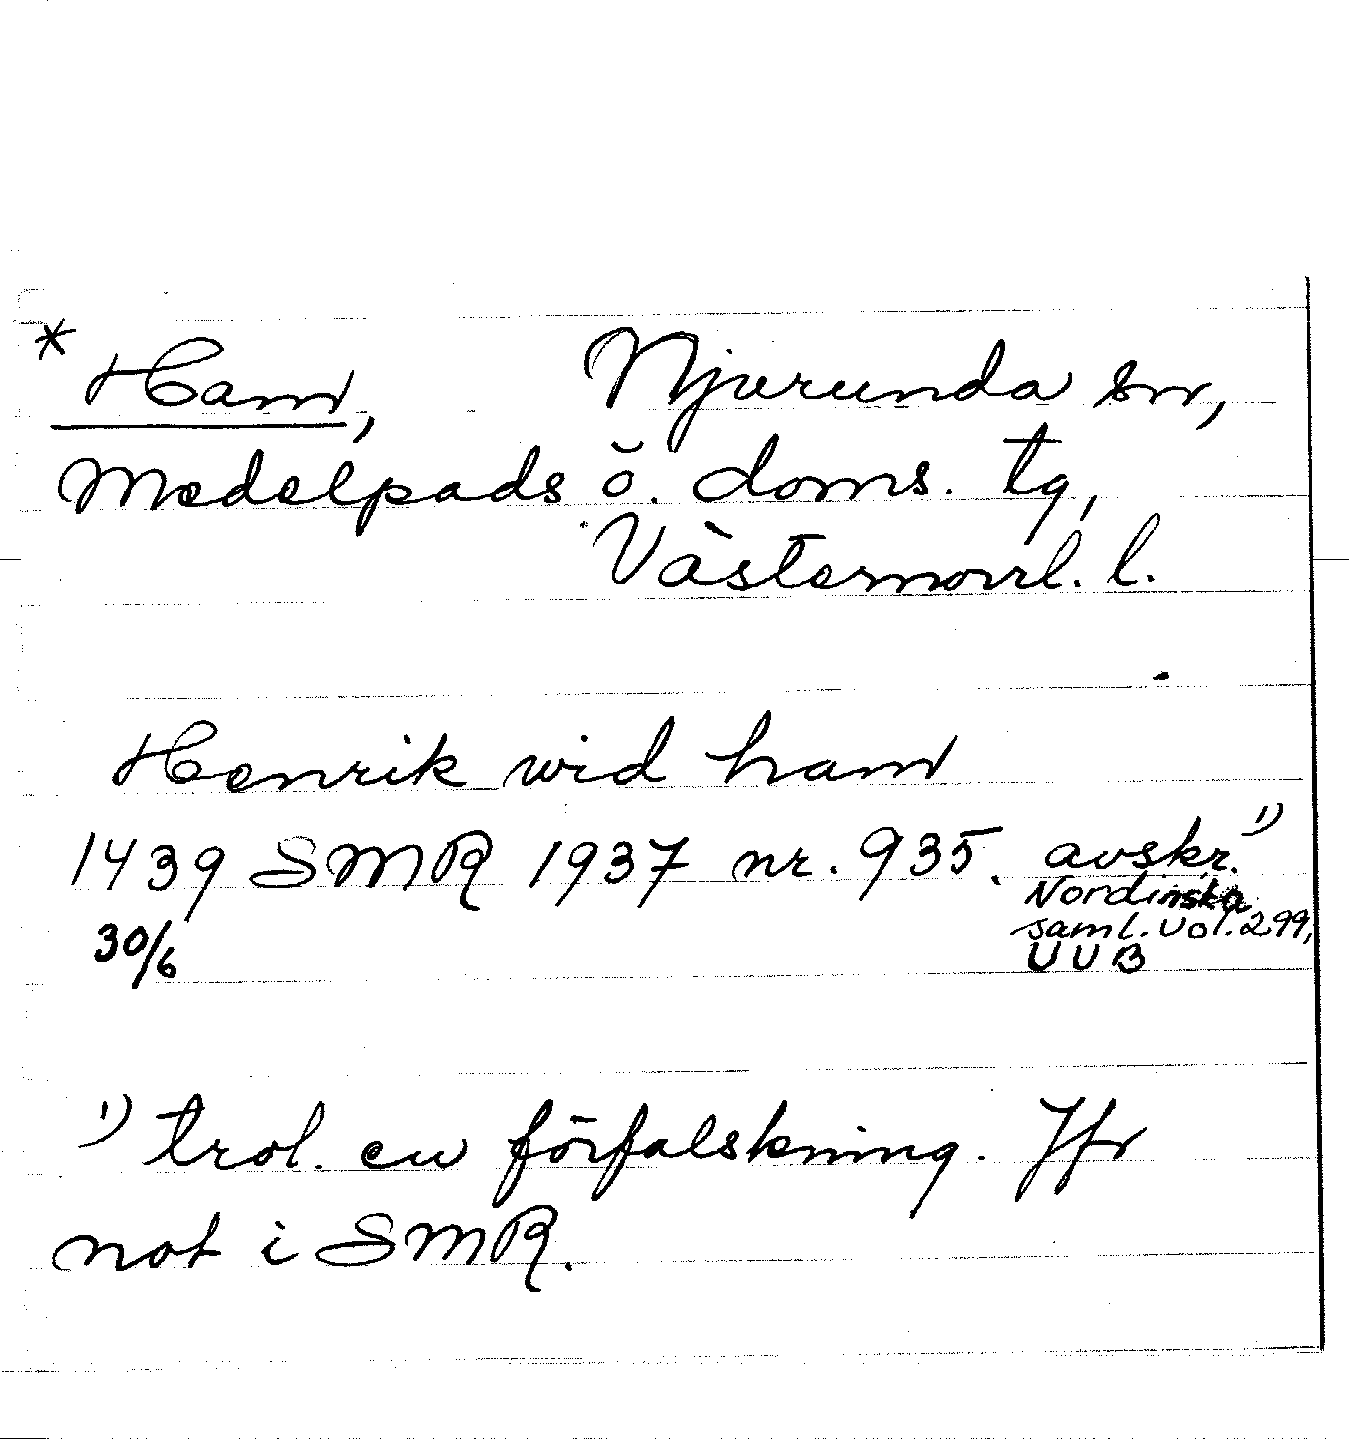 * Ham, Njurunda sn,
Medelpads ö. doms. tg,
Västernorrl. l.
Henrik wid ham
1439 SMR 1937 nr. 935. avskr. 1)
30/6 Nordinska
saml. vol. 299,
UUB
1) trol. en förfalskning. Jfr
not i SMR.